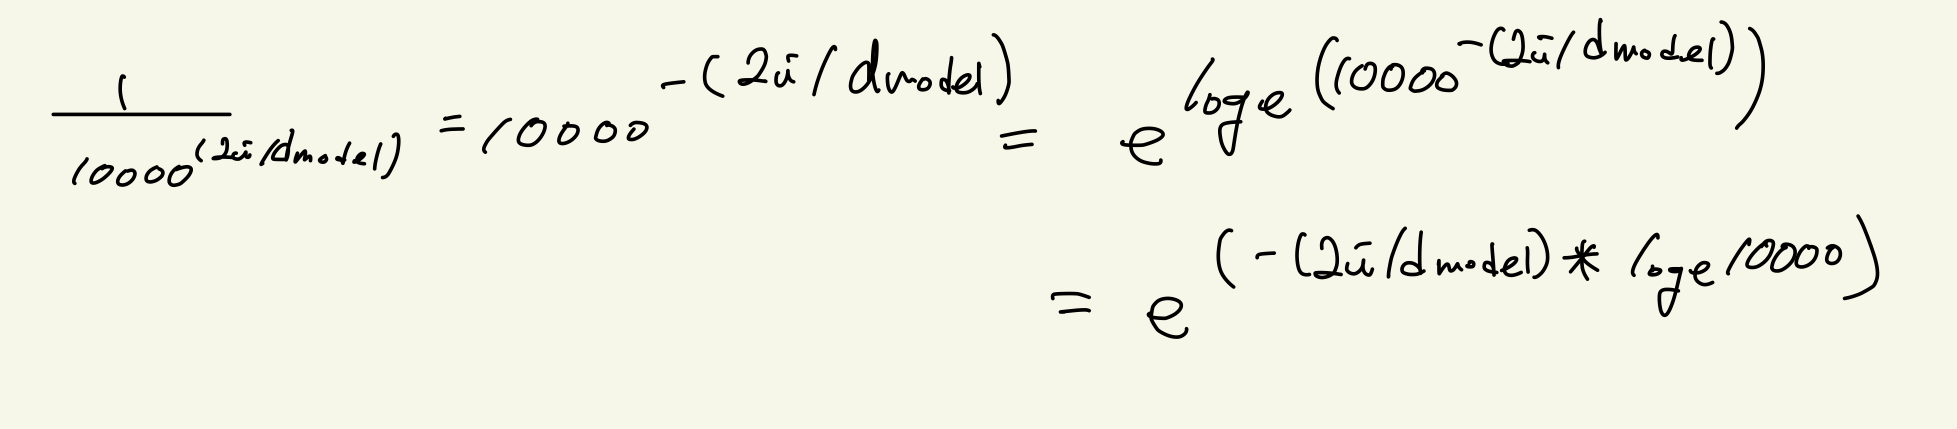 1 / 10000^(2i/dmodel) = 10000^-(2i/dmodel) = e^loge(10000^-(2i/dmodel))
= e^(-(2i/dmodel)*loge10000)